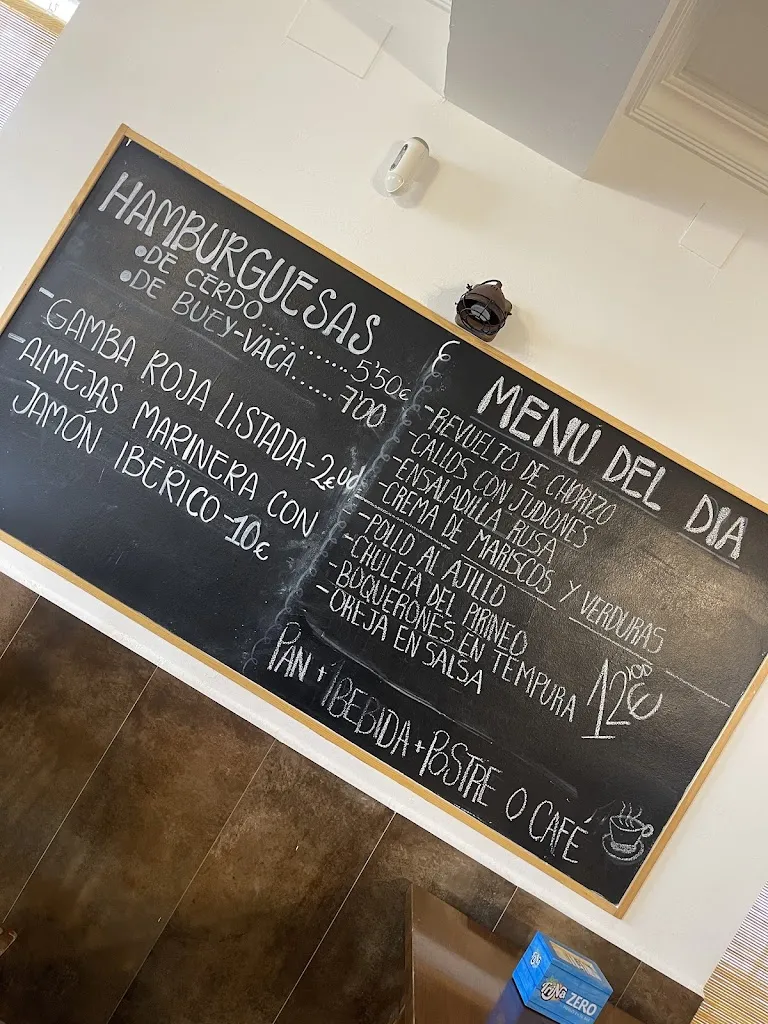 HAMBURGUESAS
•DE CERDO............5'50€
•DE BUEY-VACA......7'00
-GAMBA ROJA LISTADA-2€ud
-ALMEJAS MARINERA CON
JAMÓN IBERICO-10€
MENÚ DEL DIA
-REVUELTO DE CHORIZO
-CALLOS CON JUDIONES
-ENSALADILLA RUSA
-CREMA DE MARISCOS Y VERDURAS
-POLLO AL AJILLO
-CHULETA DEL PIRINEO
-BOQUERONES EN TEMPURA
-OREJA EN SALSA
12'00€
PAN + 1BEBIDA + POSTRE O CAFÉ
TriNa ZERO